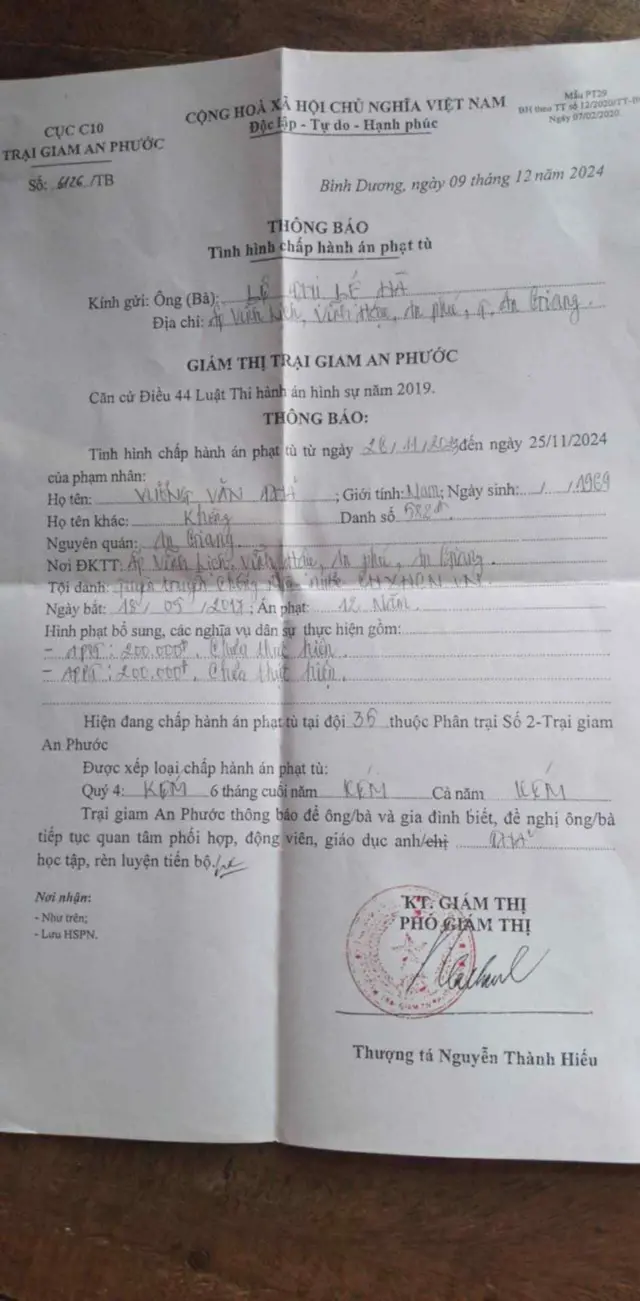 CỤC C10
TRẠI GIAM AN PHƯỚC
Số: 6126/TB
CỘNG HOÀ XÃ HỘI CHỦ NGHĨA VIỆT NAM
Độc lập - Tự do - Hạnh phúc
Mẫu PT29
BH theo TT số 12/2020/TT-B
Ngày 07/02/2020
Bình Dương, ngày 09 tháng 12 năm 2024
THÔNG BÁO
Tình hình chấp hành án phạt tù
Kính gửi: Ông (Bà): LÊ THỊ LÉ HÀ
Địa chỉ: Ấp Vĩnh Lịch, Vĩnh Hậu, An phú, An Giang.
GIÁM THỊ TRẠI GIAM AN PHƯỚC
Căn cứ Điều 44 Luật Thi hành án hình sự năm 2019.
THÔNG BÁO:
Tình hình chấp hành án phạt tù từ ngày 26/11/2023 đến ngày 25/11/2024
của phạm nhân:
Họ tên: VƯƠNG VĂN THẢ; Giới tính: Nam; Ngày sinh: / / 1969
Họ tên khác: Không Danh số 582
Nguyên quán: An Giang.
Nơi ĐKTT: Ấp Vĩnh Lịch, Vĩnh Hậu, An phú, An Giang.
Tội danh: Tuyên truyền chống Nhà nước CHXHCN VN.
Ngày bắt: 18/05/2017; Án phạt: 12 Năm.
Hình phạt bổ sung, các nghĩa vụ dân sự thực hiện gồm:
- APST: 200.000đ. Chưa thực hiện.
- APPT: 200.000đ. Chưa thực hiện.
Hiện đang chấp hành án phạt tù tại đội 36 thuộc Phân trại Số 2-Trại giam
An Phước
Được xếp loại chấp hành án phạt tù:
Quý 4: KÉM 6 tháng cuối năm KÉM Cả năm KÉM
Trại giam An Phước thông báo để ông/bà và gia đình biết, đề nghị ông/bà
tiếp tục quan tâm phối hợp, động viên, giáo dục anh/chị THẢ
học tập, rèn luyện tiến bộ./.
Nơi nhận:
- Như trên;
- Lưu HSPN.
KT. GIÁM THỊ
PHÓ GIÁM THỊ
Thượng tá Nguyễn Thành Hiếu